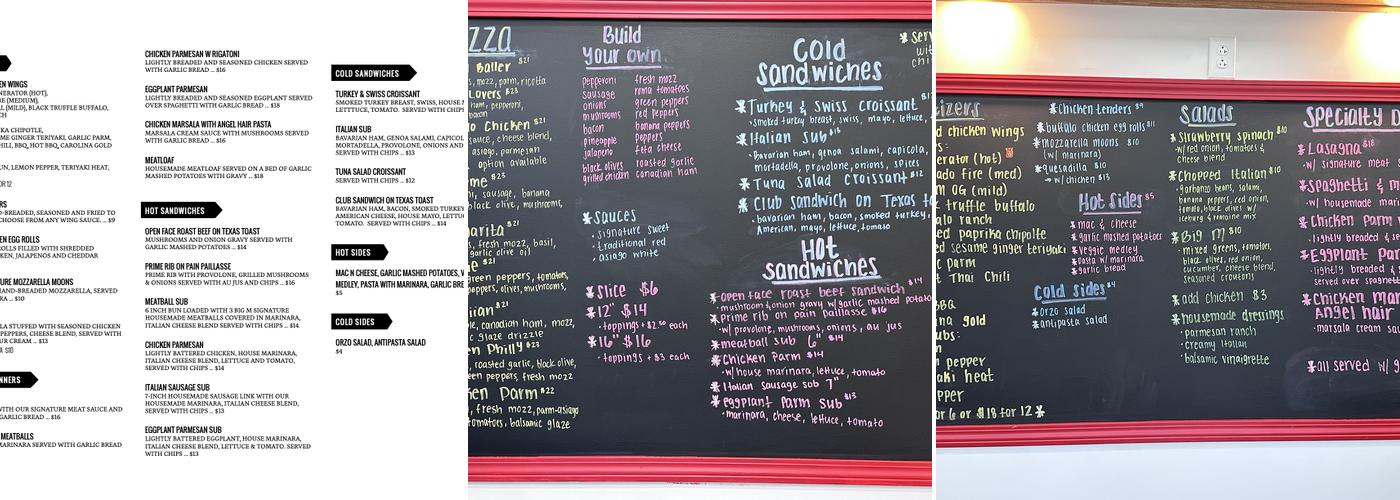 N WINGS
NERATOR (HOT),
RE (MEDIUM),
(MILD), BLACK TRUFFLE BUFFALO,
CH
KA CHIPOTLE,
ME GINGER TERIYAKI, GARLIC PARM,
HILI, BBQ, HOT BBQ, CAROLINA GOLD
UN, LEMON PEPPER, TERIYAKI HEAT,
OR 12
ERS
D-BREADED, SEASONED AND FRIED TO
CHOOSE FROM ANY WING SAUCE. ... $9
EN EGG ROLLS
ROLLS FILLED WITH SHREDDED
KEN, JALAPENOS AND CHEDDAR
URE MOZZARELLA MOONS
HAND-BREADED MOZZARELLA, SERVED
RA ... $10
LA STUFFED WITH SEASONED CHICKEN
PEPPERS, CHEESE BLEND, SERVED WITH
UR CREAM ... $13
A $10
NNERS
WITH OUR SIGNATURE MEAT SAUCE AND
GARLIC BREAD ... $16
MEATBALLS
MARINARA SERVED WITH GARLIC BREAD
CHICKEN PARMESAN W RIGATONI
LIGHTLY BREADED AND SEASONED CHICKEN SERVED
WITH GARLIC BREAD ... $16
EGGPLANT PARMESAN
LIGHTLY BREADED AND SEASONED EGGPLANT SERVED
OVER SPAGHETTI WITH GARLIC BREAD ... $18
CHICKEN MARSALA WITH ANGEL HAIR PASTA
MARSALA CREAM SAUCE WITH MUSHROOMS SERVED
WITH GARLIC BREAD ... $18
MEATLOAF
HOUSEMADE MEATLOAF SERVED ON A BED OF GARLIC
MASHED POTATOES WITH GRAVY ... $18
HOT SANDWICHES
OPEN FACE ROAST BEEF ON TEXAS TOAST
MUSHROOMS AND ONION GRAVY SERVED WITH
GARLIC MASHED POTATOES ... $14
PRIME RIB ON PAIN PAILLASSE
PRIME RIB WITH PROVOLONE, GRILLED MUSHROOMS
& ONIONS SERVED WITH AU JUS AND CHIPS ... $16
MEATBALL SUB
6 INCH BUN LOADED WITH 3 BIG M SIGNATURE
HOUSEMADE MEATBALLS COVERED IN MARINARA,
ITALIAN CHEESE BLEND SERVED WITH CHIPS ... $14
CHICKEN PARMESAN
LIGHTLY BATTERED CHICKEN, HOUSE MARINARA,
ITALIAN CHEESE BLEND, LETTUCE AND TOMATO,
SERVED WITH CHIPS ... $14
ITALIAN SAUSAGE SUB
7-INCH HOUSEMADE SAUSAGE LINK WITH OUR
HOUSEMADE MARINARA, ITALIAN CHEESE BLEND,
SERVED WITH CHIPS ... $13
EGGPLANT PARMESAN SUB
LIGHTLY BATTERED EGGPLANT, HOUSE MARINARA,
ITALIAN CHEESE BLEND, LETTUCE & TOMATO. SERVED
WITH CHIPS ... $13
COLD SANDWICHES
TURKEY & SWISS CROISSANT
SMOKED TURKEY BREAST, SWISS, HOUSE
LETTTUCE, TOMATO. SERVED WITH CHIPS
ITALIAN SUB
BAVARIAN HAM, GENOA SALAMI, CAPICOL
MORTADELLA, PROVOLONE, ONIONS AND
SERVED WITH CHIPS ... $13
TUNA SALAD CROISSANT
SERVED WITH CHIPS ... $12
CLUB SANDWICH ON TEXAS TOAST
BAVARIAN HAM, BACON, SMOKED TURKEY
AMERICAN CHEESE, HOUSE MAYO, LETTU
TOMATO. SERVED WITH CHIPS ... $14
HOT SIDES
MAC N CHEESE, GARLIC MASHED POTATOES, V
MEDLEY, PASTA WITH MARINARA, GARLIC BRE
$5
COLD SIDES
ORZO SALAD, ANTIPASTA SALAD
$4
ZZA
Baller $21
s, mozz, parm, ricotta
Lovers $23
ham, pepperoni,
bacon
o Chicken $21
sauce, cheese blend,
asiago, parmesan
option available
me $23
i, sausage, banana
black olive, mushrooms,
arita $21
s, fresh mozz, basil,
garlic olive oil
ie $21
green peppers, tomatoes,
black olives, mushrooms
ian $21
le, canadian ham, mozz,
c glaze drizzle
en Philly $23
roasted garlic, black olive,
n peppers, fresh mozz
ken Parm $22
, fresh mozz, parm-asiago
tomatoes, balsamic glaze
Build
your own
pepperoni fresh mozz
sausage roma tomatoes
onions green peppers
mushrooms red peppers
bacon banana peppers
pineapple peppers
jalapeno feta cheese
black olives roasted garlic
grilled chicken canadian ham
*sauces
• signature sweet
• traditional red
• asiago white
*slice $6
*12" $14
• toppings + $2.50 each
*16" $16
• toppings + $3 each
* serv
with
chi
Cold
sandwiches
*Turkey & Swiss croissant
• smoked turkey breast, swiss, mayo, lettuce,
*Italian Sub $13
• Bavarian ham, genoa salami, capicola,
mortadella, provolone, onions, spices
*Tuna salad croissant $12
*Club sandwich on Texas to
• bavarian ham, bacon, smoked turkey,
American, mayo, lettuce, tomato
Hot
sandwiches
*open face roast beef sandwich $14
• mushroom & onion gravy w/garlic mashed potato
*prime rib on pain paillasse $16
• w/ provolone, mushrooms, onions, au jus
*meatball sub 6" $14
*Chicken Parm $14
• w/ house marinara, lettuce, tomato
*Italian Sausage sub 7"
*eggplant parm sub $13
• marinara, cheese, lettuce, tomato
izers
d chicken wings
s:
erator (hot)
ado fire (med)
m OG (mild)
truffle buffalo
lo ranch
ed paprika chipotle
ed sesame ginger teriyaki
c parm
t Thai Chili
BBQ
na gold
ubs:
n pepper
aki heat
pper
or 6 or $18 for 12 *
*chicken tenders $9
*buffalo chicken egg rolls $11
*mozzarella moons $10
(w/ marinara)
*quesadilla $10
→ w/ chicken $13
Hot sides $5
*mac & cheese
*garlic mashed potatoes
*veggie medley
*pasta w/ marinara
*garlic bread
Cold sides $4
*orzo salad
*antipasta salad
Salads
*Strawberry spinach $10
• w/red onion, tomatoes &
cheese blend
*chopped Italian $10
• garbanzo beans, salami,
banana peppers, red onion,
tomato, black olives w/
iceberg & romaine mix
*Big M $10
• mixed greens, tomatoes,
black olives, red onion,
cucumber, cheese blend,
seasoned croutons
*add chicken $3
*housemade dressings
• parmesan ranch
• creamy italian
• balsamic vinaigrette
Specialty D
*Lasagna $18
• w/ signature meat s
*spaghetti & m
• w/ housemade marin
*Chicken parm
• lightly breaded & se
*EggPlant Par
• lightly breaded &
served over spaghett
*Chicken mar
Angel hair
• marsala cream sau
*all served w/ g